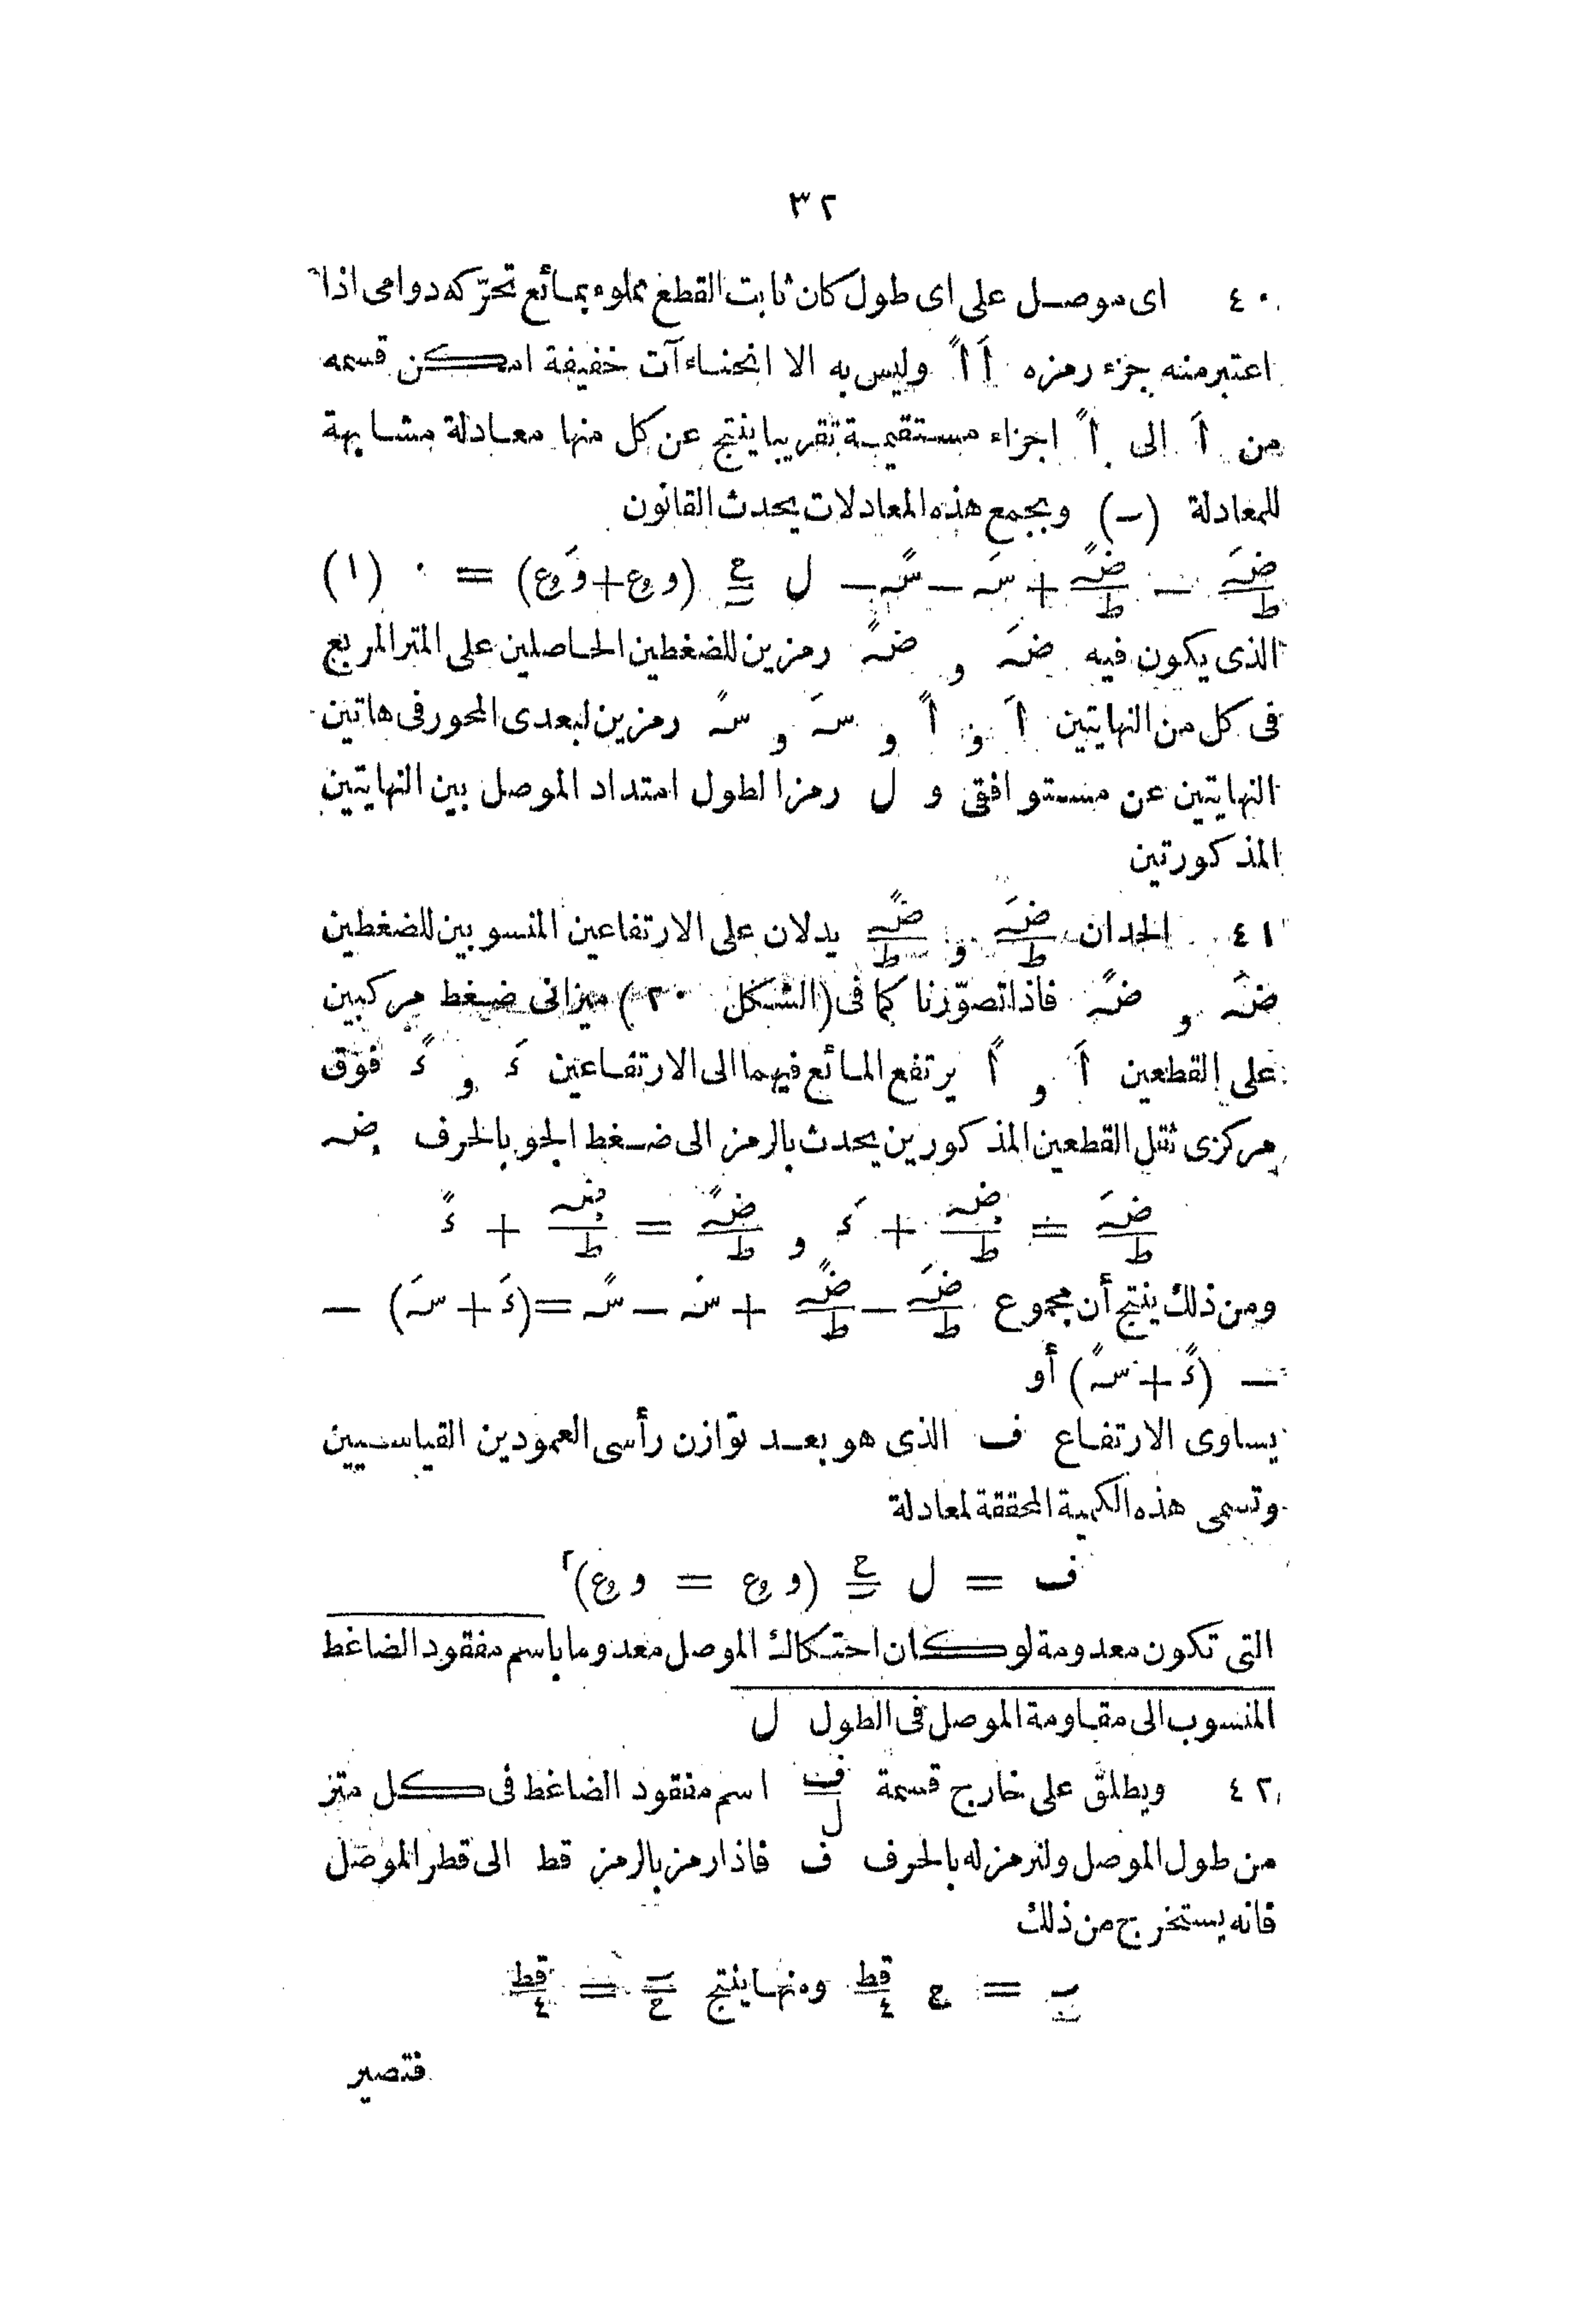 ٣٢
٤٠ اى موصل على اى طول كان ثابت القطع مملوء بمائع تحرّكه دوامى اذا
اعتبر منه جزء رمزه أَ أً وليس به الا انحناءآت خفيفة امكن قسمه
من أَ الى أً اجزاء مستقيمة تقريبا ينتج عن كل منها معادلة مشابهة
للمعادلة (ـ) وبجمع هذه المعادلات يحدث القانون
ضَـ/ط − ضًـ/ط + سَـ − سًـ − ل ح/ـ (و ع + وَ ع) = ٠ (١)
الذى يكون فيه ضَـ و ضًـ رمزين للضغطين الحاصلين على المتر المربع
فى كل من النهايتين أَ و أً و سَـ و سًـ رمزين لبعدى المحور فى هاتين
النهايتين عن مستو افقى و ل رمزا لطول امتداد الموصل بين النهايتين
المذكورتين
٤١ الحدان ضَـ/ط و ضًـ/ط يدلان على الارتفاعين المنسوبين للضغطين
ضَـ و ضًـ فاذا تصوّرنا كما فى (الشكل ٢٠) ميزانى ضغط مركبين
على القطعين أَ و أً يرتفع المائع فيهما الى الارتفاعين ءَ و ءً فوق
مركزى ثقل القطعين المذكورين يحدث بالرمز الى ضغط الجو بالحرف ضـ
ضَـ/ط = ضـ/ط + ءَ و ضًـ/ط = ضـ/ط + ءً
ومن ذلك ينتج أن مجموع ضَـ/ط − ضًـ/ط + سَـ − سًـ = (ءَ + سَـ) −
− (ءً + سًـ) أو
يساوى الارتفاع ف الذى هو بعد توازن رأسى العمودين القياسيين
وتسمى هذه الكمية المحققة لمعادلة
ف = ل ح/ـ (و ع = و ع)٢
التى تكون معدومة لو كان احتكاك الموصل معدوما باسم مفقود الضاغط
المنسوب الى مقاومة الموصل فى الطول ل
٤٢ ويطلق على خارج قسمة ف/ل اسم مفقود الضاغط فى كل متر
من طول الموصل ولنرمز له بالحرف ف فاذا رمز بالرمز قط الى قطر الموصل
فانه يستخرج من ذلك
ـ = ح قط/٤ ومنها ينتج ـ/ح = قط/٤
فتصير